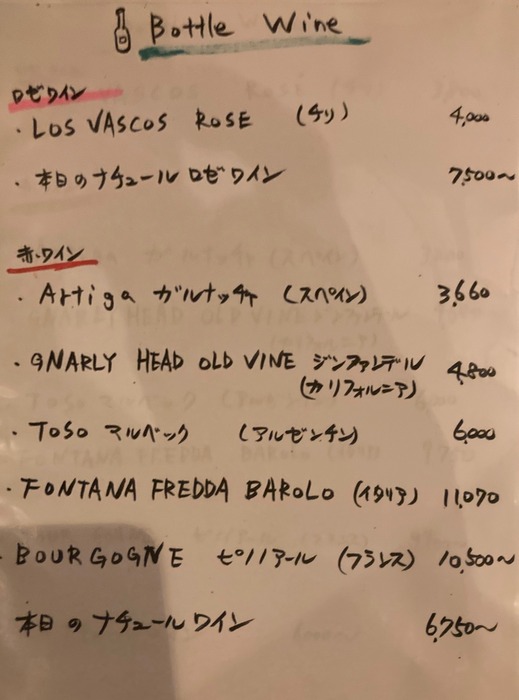 Bottle Wine
ロゼワイン
・LOS VASCOS ROSE (チリ) 4,000
・本日のナチュールロゼワイン 7,500〜
赤ワイン
・Artiga ガルナッチャ (スペイン) 3,660
・GNARLY HEAD OLD VINE ジンファンデル 4,800
(カリフォルニア)
・TOSO マルベック (アルゼンチン) 6,000
・FONTANA FREDDA BAROLO (イタリア) 11,070
・BOURGOGNE ピノノアール (フランス) 10,500〜
本日のナチュールワイン 6,750〜